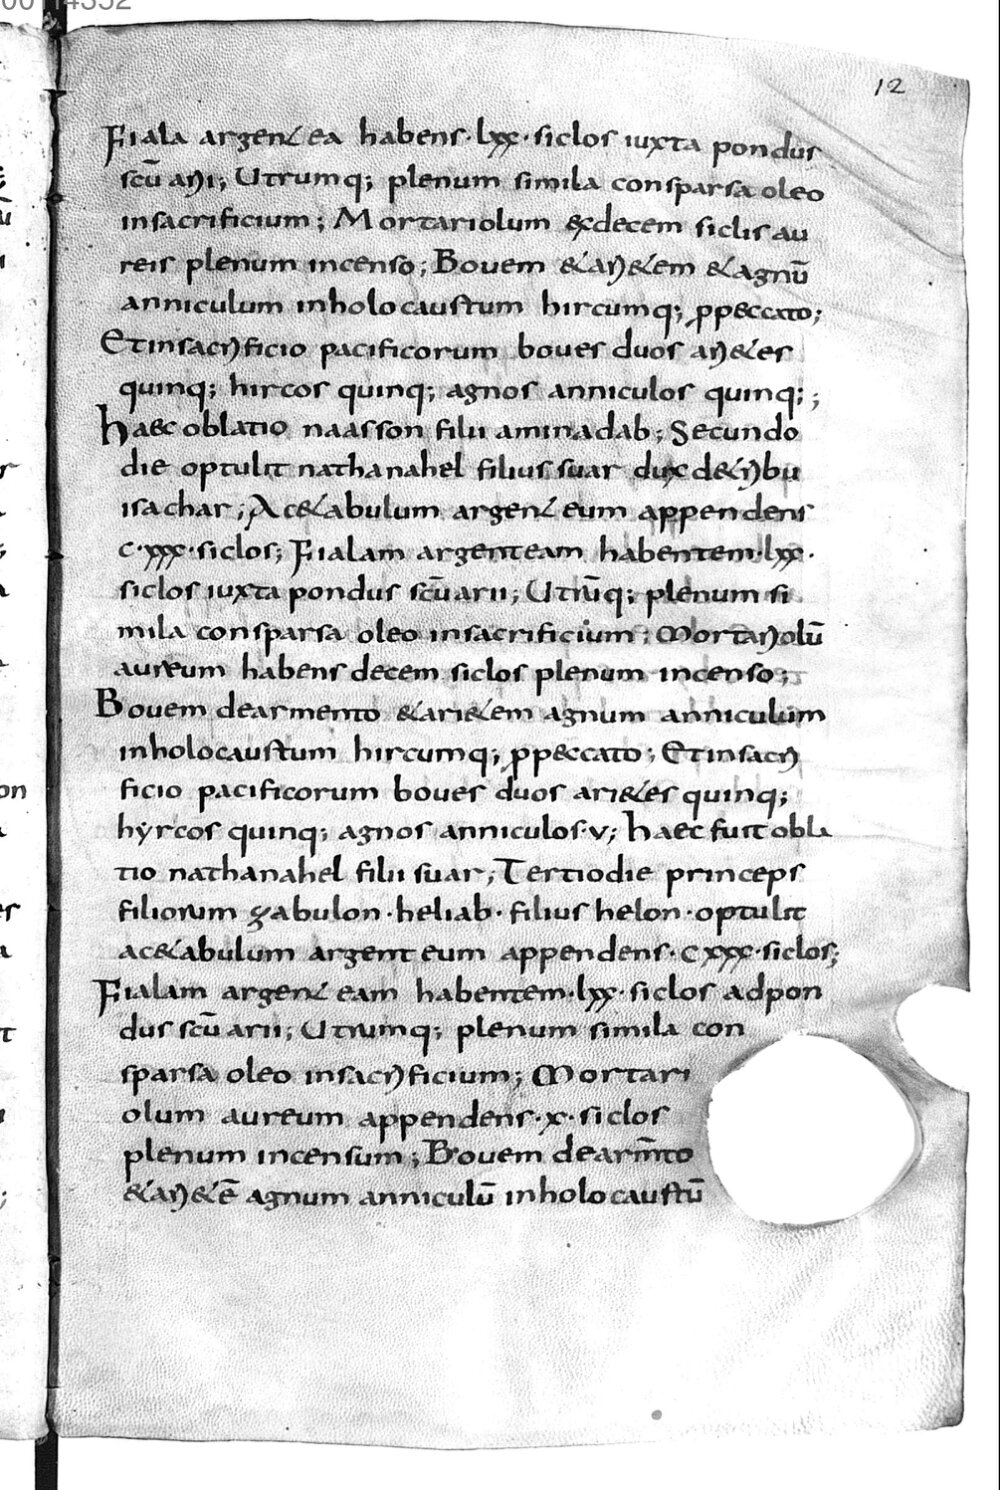 12
Fiala argentea habens·lxx·siclos iuxta pondus
scū arii; Utrumq; plenum simila consparsa oleo
insacrificium; Mortariolum exdecem siclis au
reis plenum incenso; Bouem &ari&em &agnū
anniculum inholocaustum hircumq; ꝓpeccato;
Etinsacrificio pacificorum boues duos ari&es
quinq; hircos quinq; agnos anniculos quinq; ;
haec oblatio naasson filii aminadab; Secundo
die optulit nathanahel filius suar dux de&ribu
isachar; Ac&abulum argenteum appendens
c·xxx·siclos; Fialam argenteam habentem·lxx·
siclos iuxta pondus scūarii; Utrūq; plenum si
mila consparsa oleo insacrificium; Mortariolū
aureum habens decem siclos plenum incenso;
Bouem dearmento &ari&em agnum anniculum
inholocaustum hircumq; ꝓpeccato; Etinsacri
ficio pacificorum boues duos ari&es quinq;
hyrcos quinq; agnos anniculos·v; haec fuit obla
tio nathanahel filii suar; Tertiodie princeps
filiorum zabulon·heliab·filius helon·optulit
ac&abulum argenteum appendens·cxxx·siclos;
Fialam argenteam habentem·lxx·siclos adpon
dus scū arii; Utrumq; plenum simila con
sparsa oleo insacrificium; Mortari
olum aureum appendens·x·siclos
plenum incensum; Bouem dearm̄to
&ari&ē agnum anniculū inholocaustū